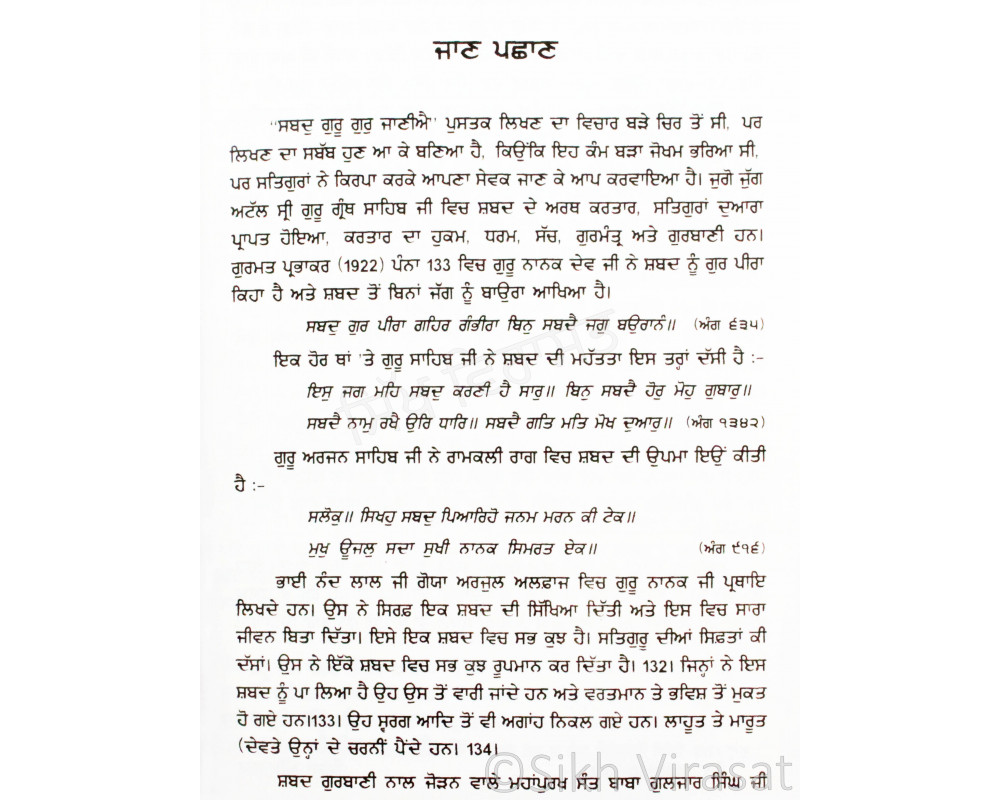 ਜਾਣ ਪਛਾਣ
"ਸਬਦੁ ਗੁਰੂ ਗੁਰੁ ਜਾਣੀਐ" ਪੁਸਤਕ ਲਿਖਣ ਦਾ ਵਿਚਾਰ ਬੜੇ ਚਿਰ ਤੋਂ ਸੀ, ਪਰ
ਲਿਖਣ ਦਾ ਸਬੱਬ ਹੁਣ ਆ ਕੇ ਬਣਿਆ ਹੈ, ਕਿਉਂਕਿ ਇਹ ਕੰਮ ਬੜਾ ਜੋਖਮ ਭਰਿਆ ਸੀ,
ਪਰ ਸਤਿਗੁਰਾਂ ਨੇ ਕਿਰਪਾ ਕਰਕੇ ਆਪਣਾ ਸੇਵਕ ਜਾਣ ਕੇ ਆਪ ਕਰਵਾਇਆ ਹੈ। ਜੁਗੋ ਜੁੱਗ
ਅਟੱਲ ਸ੍ਰੀ ਗੁਰੂ ਗ੍ਰੰਥ ਸਾਹਿਬ ਜੀ ਵਿਚ ਸ਼ਬਦ ਦੇ ਅਰਥ ਕਰਤਾਰ, ਸਤਿਗੁਰਾਂ ਦੁਆਰਾ
ਪ੍ਰਾਪਤ ਹੋਇਆ, ਕਰਤਾਰ ਦਾ ਹੁਕਮ, ਧਰਮ, ਸੱਚ, ਗੁਰਮੰਤ੍ਰ ਅਤੇ ਗੁਰਬਾਣੀ ਹਨ।
ਗੁਰਮਤ ਪ੍ਰਭਾਕਰ (1922) ਪੰਨਾ 133 ਵਿਚ ਗੁਰੂ ਨਾਨਕ ਦੇਵ ਜੀ ਨੇ ਸ਼ਬਦ ਨੂੰ ਗੁਰ ਪੀਰਾ
ਕਿਹਾ ਹੈ ਅਤੇ ਸ਼ਬਦ ਤੋਂ ਬਿਨਾਂ ਜੱਗ ਨੂੰ ਬਾਉਰਾ ਆਖਿਆ ਹੈ।
ਸਬਦੁ ਗੁਰ ਪੀਰਾ ਗਹਿਰ ਗੰਭੀਰਾ ਬਿਨੁ ਸਬਦੈ ਜਗੁ ਬਉਰਾਨੰ॥ (ਅੰਗ ੬੩੫)
ਇਕ ਹੋਰ ਥਾਂ 'ਤੇ ਗੁਰੂ ਸਾਹਿਬ ਜੀ ਨੇ ਸ਼ਬਦ ਦੀ ਮਹੱਤਤਾ ਇਸ ਤਰ੍ਹਾਂ ਦੱਸੀ ਹੈ :-
ਇਸੁ ਜਗ ਮਹਿ ਸਬਦੁ ਕਰਣੀ ਹੈ ਸਾਰੁ॥ ਬਿਨੁ ਸਬਦੈ ਹੋਰੁ ਮੋਹੁ ਗੁਬਾਰੁ॥
ਸਬਦੈ ਨਾਮੁ ਰਖੈ ਉਰਿ ਧਾਰਿ॥ ਸਬਦੈ ਗਤਿ ਮਤਿ ਮੋਖ ਦੁਆਰੁ॥ (ਅੰਗ ੧੩੪੨)
ਗੁਰੂ ਅਰਜਨ ਸਾਹਿਬ ਜੀ ਨੇ ਰਾਮਕਲੀ ਰਾਗ ਵਿਚ ਸ਼ਬਦ ਦੀ ਉਪਮਾ ਇਉਂ ਕੀਤੀ
ਹੈ :-
ਸਲੋਕੁ॥ ਸਿਖਹੁ ਸਬਦੁ ਪਿਆਰਿਹੋ ਜਨਮ ਮਰਨ ਕੀ ਟੇਕ॥
ਮੁਖੁ ਊਜਲੁ ਸਦਾ ਸੁਖੀ ਨਾਨਕ ਸਿਮਰਤ ਏਕ॥ (ਅੰਗ ੯੧੬)
ਭਾਈ ਨੰਦ ਲਾਲ ਜੀ ਗੋਯਾ ਅਰਜੁਲ ਅਲਫ਼ਾਜ ਵਿਚ ਗੁਰੂ ਨਾਨਕ ਜੀ ਪ੍ਰਥਾਇ
ਲਿਖਦੇ ਹਨ। ਉਸ ਨੇ ਸਿਰਫ਼ ਇਕ ਸ਼ਬਦ ਦੀ ਸਿੱਖਿਆ ਦਿੱਤੀ ਅਤੇ ਇਸ ਵਿਚ ਸਾਰਾ
ਜੀਵਨ ਬਿਤਾ ਦਿੱਤਾ। ਇਸੇ ਇਕ ਸ਼ਬਦ ਵਿਚ ਸਭ ਕੁਝ ਹੈ। ਸਤਿਗੁਰੂ ਦੀਆਂ ਸਿਫ਼ਤਾਂ ਕੀ
ਦੱਸਾਂ। ਉਸ ਨੇ ਇੱਕੋ ਸ਼ਬਦ ਵਿਚ ਸਭ ਕੁਝ ਰੂਪਮਾਨ ਕਰ ਦਿੱਤਾ ਹੈ। 132। ਜਿਨ੍ਹਾਂ ਨੇ ਇਸ
ਸ਼ਬਦ ਨੂੰ ਪਾ ਲਿਆ ਹੈ ਉਹ ਉਸ ਤੋਂ ਵਾਰੀ ਜਾਂਦੇ ਹਨ ਅਤੇ ਵਰਤਮਾਨ ਤੇ ਭਵਿਸ਼ ਤੋਂ ਮੁਕਤ
ਹੋ ਗਏ ਹਨ।133। ਉਹ ਸ੍ਵਰਗ ਆਦਿ ਤੋਂ ਵੀ ਅਗਾਂਹ ਨਿਕਲ ਗਏ ਹਨ। ਲਾਹੂਤ ਤੇ ਮਾਰੂਤ
(ਦੇਵਤੇ ਉਨ੍ਹਾਂ ਦੇ ਚਰਨੀਂ ਪੈਂਦੇ ਹਨ। 134।
ਸ਼ਬਦ ਗੁਰਬਾਣੀ ਨਾਲ ਜੋੜਨ ਵਾਲੇ ਮਹਾਂਪੁਰਖ ਸੰਤ ਬਾਬਾ ਗੁਲਜਾਰ ਸਿੰਘ ਜੀ
ਸਿੱਖ ਵਿਰਾਸਤ
©Sikh Virasat